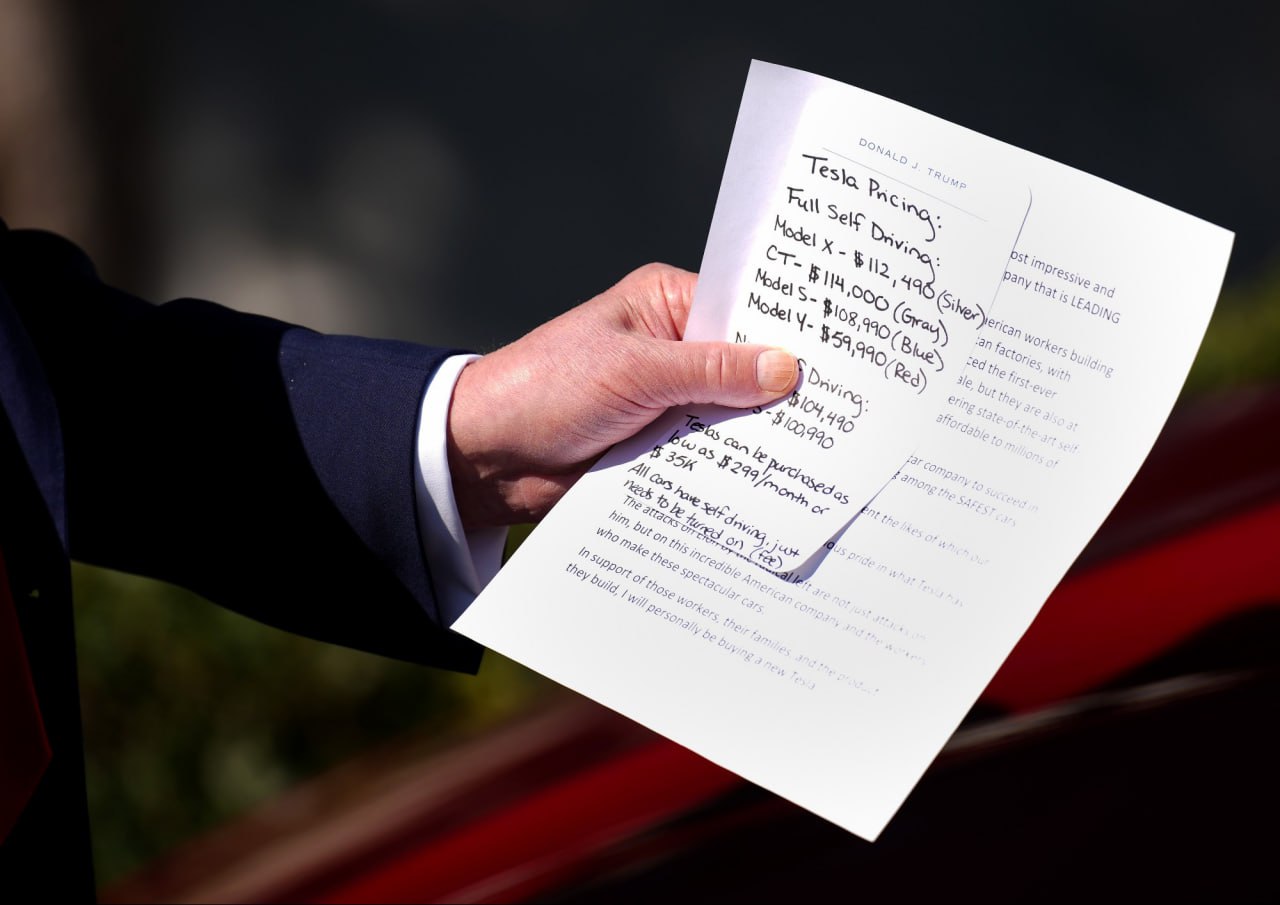 DONALD J. TRUMP
Tesla Pricing:
Full Self Driving:
Model X - $112,490 (Silver)
CT- $114,000 (Gray)
Model S- $108,990 (Blue)
Model Y- $59,990 (Red)
Driving:
$104,490
S - $100,990
Teslas can be purchased as
low as $299/month or
$35K
All cars have self driving, just
needs to be turned on (fee)
ost impressive and
pany that is LEADING
erican workers building
can factories, with
ced the first-ever
ale, but they are also at
ering state-of-the-art self
affordable to millions of
car company to succeed in
among the SAFEST cars
ent the likes of which our
ous pride in what Tesla has
The attacks on left are not just attacks on
him, but on this incredible American company and the workers
who make these spectacular cars.
In support of those workers, their families, and the product
they build, I will personally be buying a new Tesla